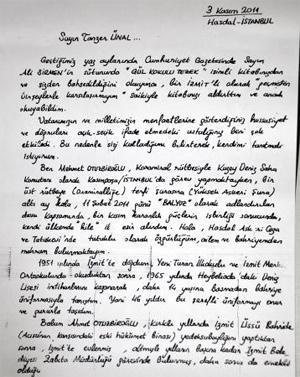 3 Kasım 2011
Hasdal-İSTANBUL
Sayın Tanzer ÜNAL ...
Geçtiğimiz yaz aylarında Cumhuriyet Gazetesinde Sayın
Ali SİRMEN'in sütununda "GÜL KOKULU TEREK" isimli kitabınızdan
ve sizden bahsedildiğini okuyunca, bir İZMİT'li olarak "geçmişten
karalasıyorum" saikiyle kitabınızı aldırttım ve ancak
okuyabildim.
Vatanımızın ve milletimizin menfaatlerine gösterdiğiniz hassasiyet
ve doğruları açık-seçik ifade etmedeki ustalığınız beni çok
etkiledi. Bu nedenle sizi kutladığımı belirterek, kendimi tanıtmak
istiyorum.
Ben Mehmet OTUZBİROĞLU, Koramiral rütbesiyle Kuzey Deniz Saha
Komutanı olarak Kasımpaşa/İSTANBUL'da görev yapmaktayken, bir
üst rütbeye (Oramiralliğe) terfi sırasına (Yüksek Askeri Şura)
altı ay kala, 11 Şubat 2011 günü "BALYOZ" olarak adlandırılan
dava kapsamında, bir kısım karanlık güçlerin işbirliği sonucunda,
kendi ülkemde "hile" ile esir alındım. Hala, Hasdal Askeri Ceza
ve Tutukevi'nde tutuklu olarak özgürlüğüm, ailem ve bahriyemden
mahrum bulunmaktayım.
1951 yılında İzmit'te doğdum. Yeni Turan İlkokulu ve İzmit Merk.
Ortaokulunda okuduktan sonra, 1965 yılında Heybeliada'daki Deniz
Lisesi imtihanlarını kazanarak, daha 14 yaşına basmadan Bahriye
üniformasıyla tanıştım. Yani 46 yıldır bu şerefli üniformayı onur
ve gururla taşıdım.
Babam Ahmet OTUZBİROĞLU, Kırklı yıllarda İzmit Üssü Bahride
(Acısının karşısındaki eski hükümet binası) yedeksubaylığını yaptıktan
sonra, İzmit'te evlenmiş, altmışlı yılların başına kadar İzmit Bele-
diyesi Zabıta Müdürlüğü görevinde bulunmuş, daha sonra da emekli
olduğu